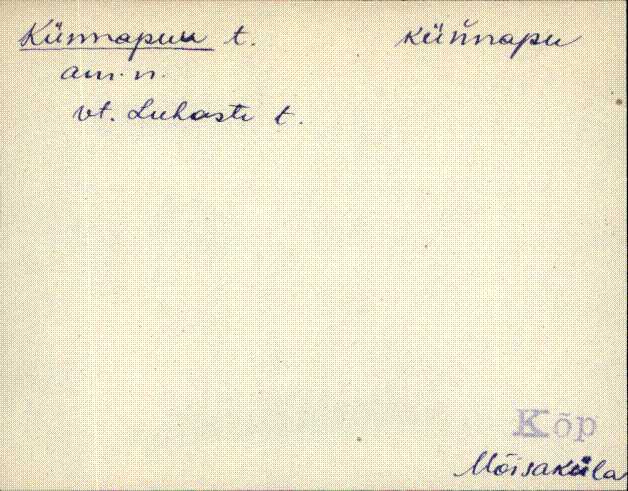 Künnapuu t. küňnapu
am. n.
vt. Luhaste t.
Kõp
Mõisaküla